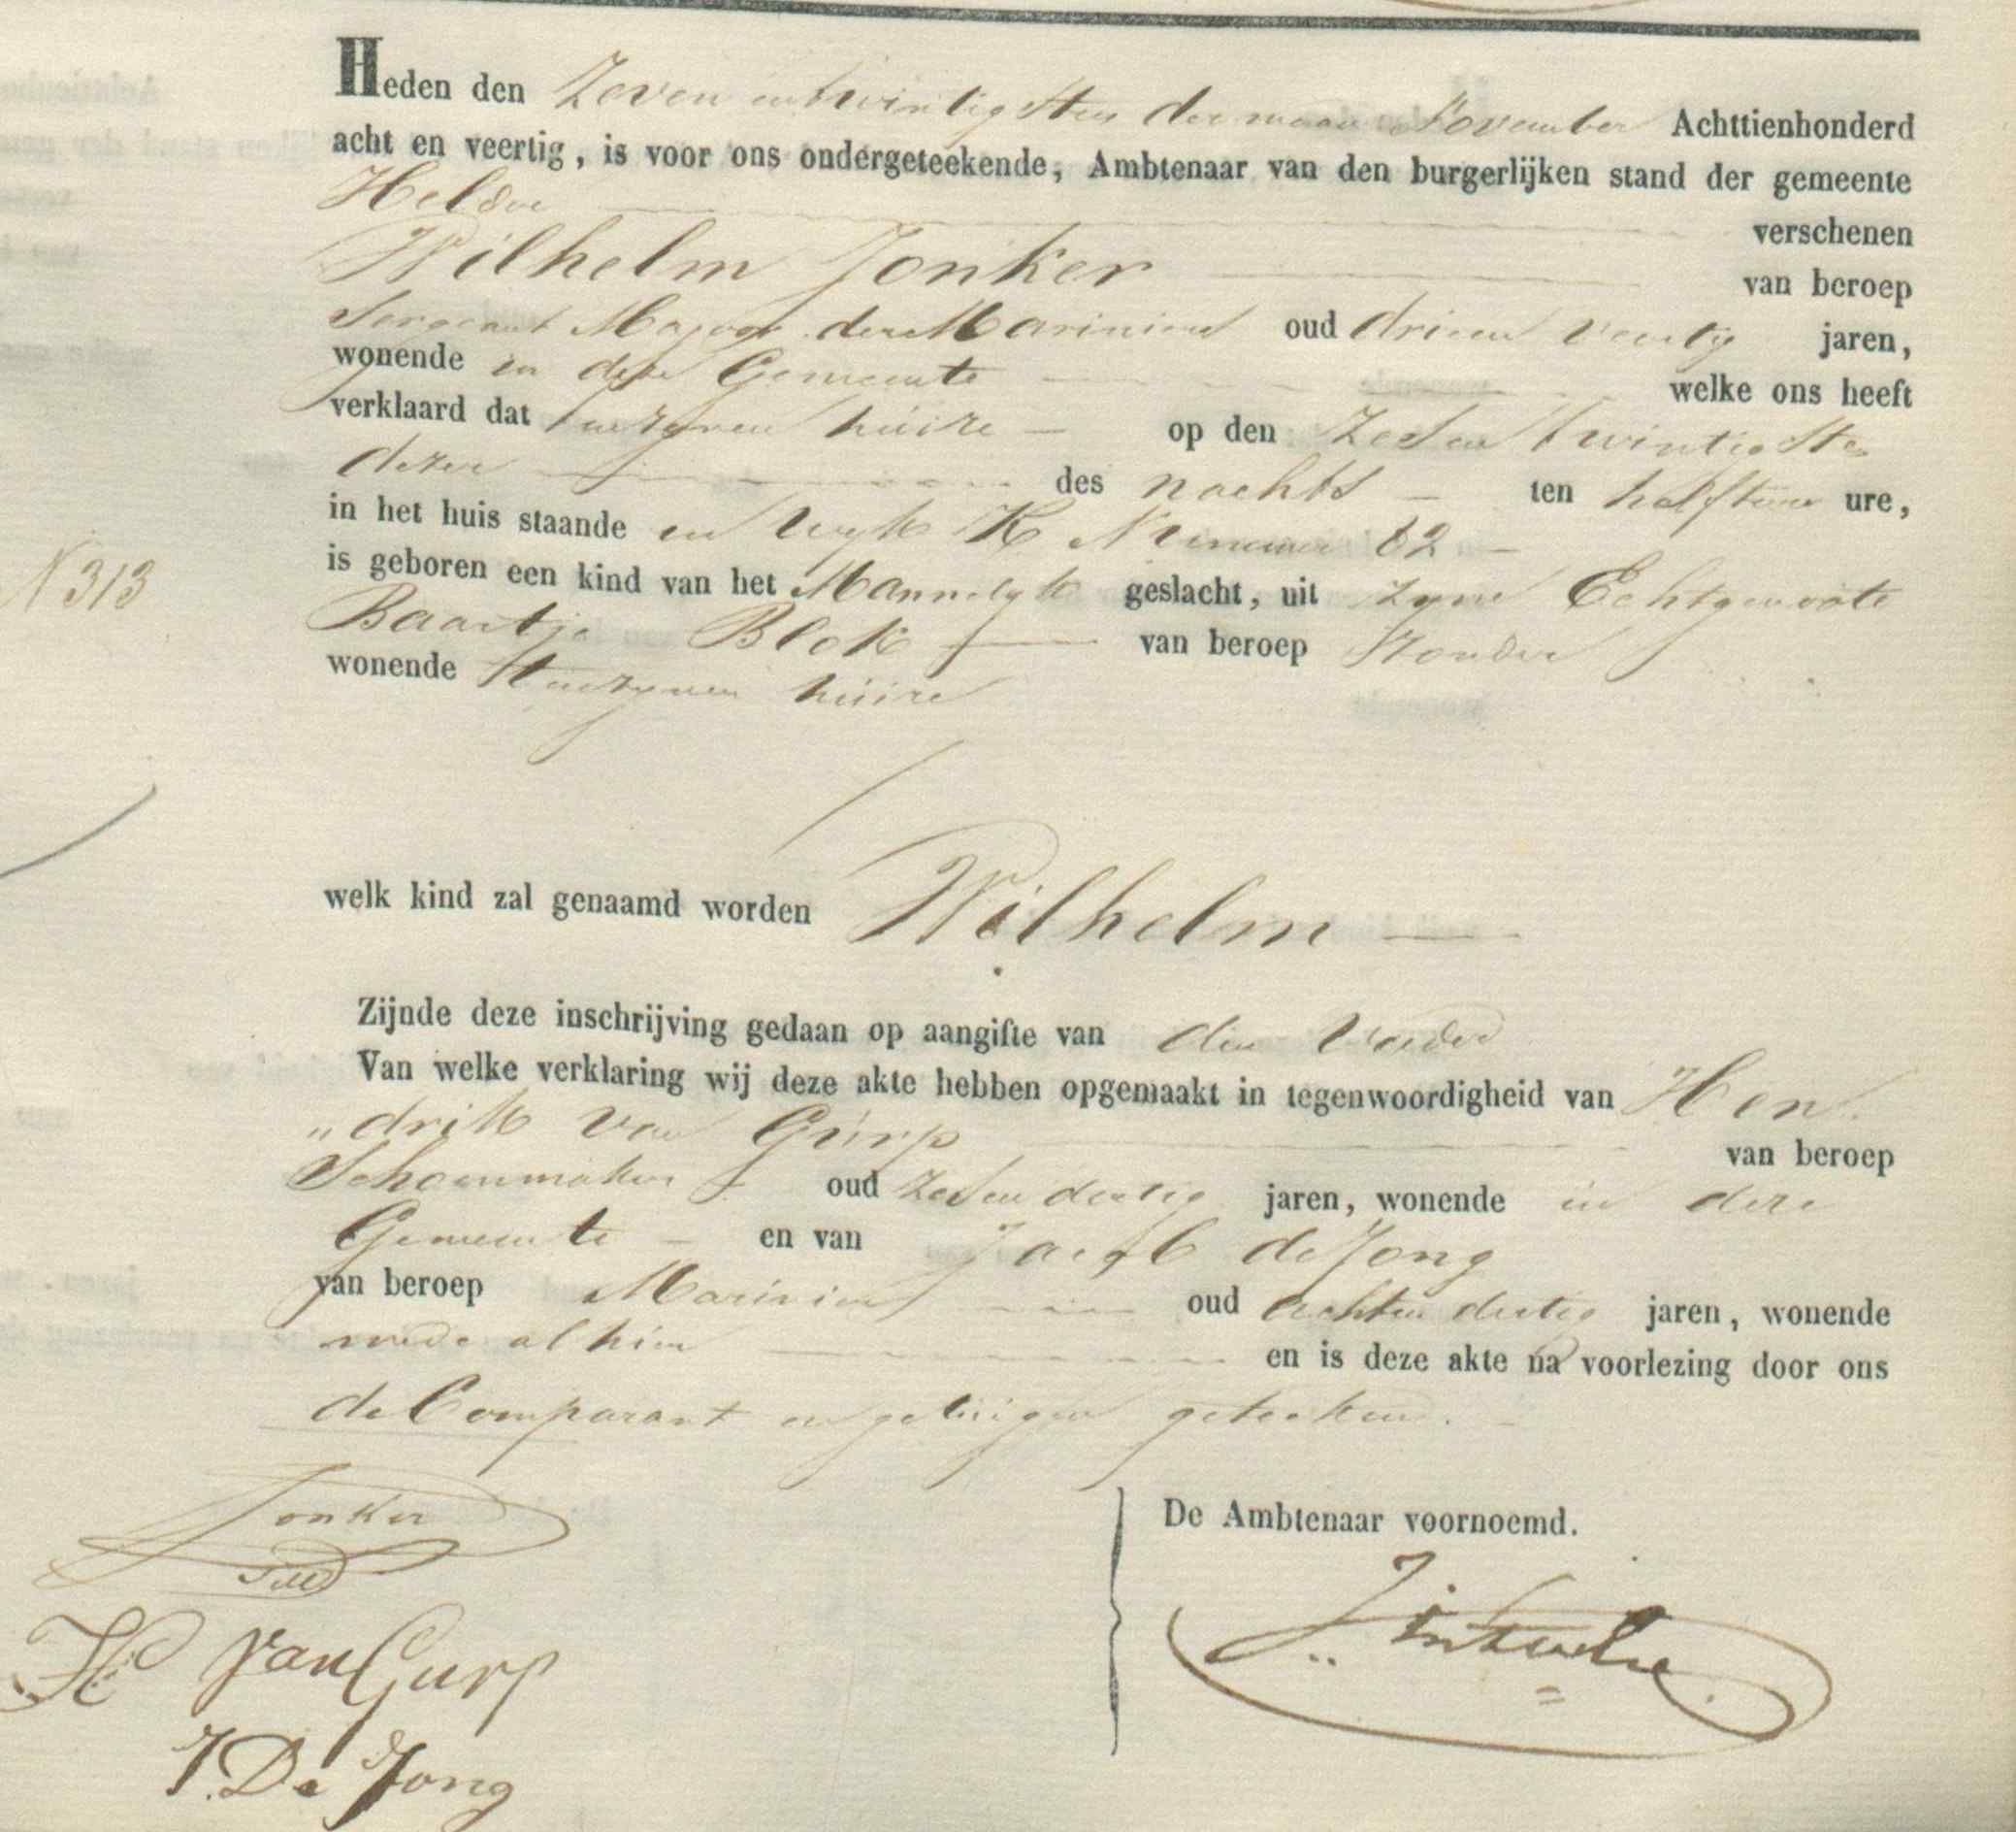 Heden den Zeven en twintigsten der maand November Achttienhonderd
acht en veertig, is voor ons ondergeteekende, Ambtenaar van den burgerlijken stand der gemeente
Helder verschenen
Wilhelm Jonker van beroep
Sergeant Majoor der Mariniers oud drieen veertig jaren,
wonende in deze Gemeente welke ons heeft
verklaard dat tenzynen huize op den Zes en twintigsten
dezer des nachts ten half twee ure,
in het huis staande in Wyk K Nummer 82
N 313
is geboren een kind van het Mannelyk geslacht, uit zyne Echtgenoote
Baartje Blok van beroep Zonder
wonende tenzynen huize
welk kind zal genaamd worden Wilhelm
Zijnde deze inschrijving gedaan op aangifte van den Vader
Van welke verklaring wij deze akte hebben opgemaakt in tegenwoordigheid van Hen
„drik van Gurp van beroep
Schoenmaker oud Zes en dertig jaren, wonende in deze
Gemeente en van Jacob de Jong
van beroep Marinier oud achten dertig jaren, wonende
mede alhier en is deze akte na voorlezing door ons
de Comparant en getuigen geteekend.
Jonker
De Ambtenaar voornoemd.
H van Gurp
J. De Jong